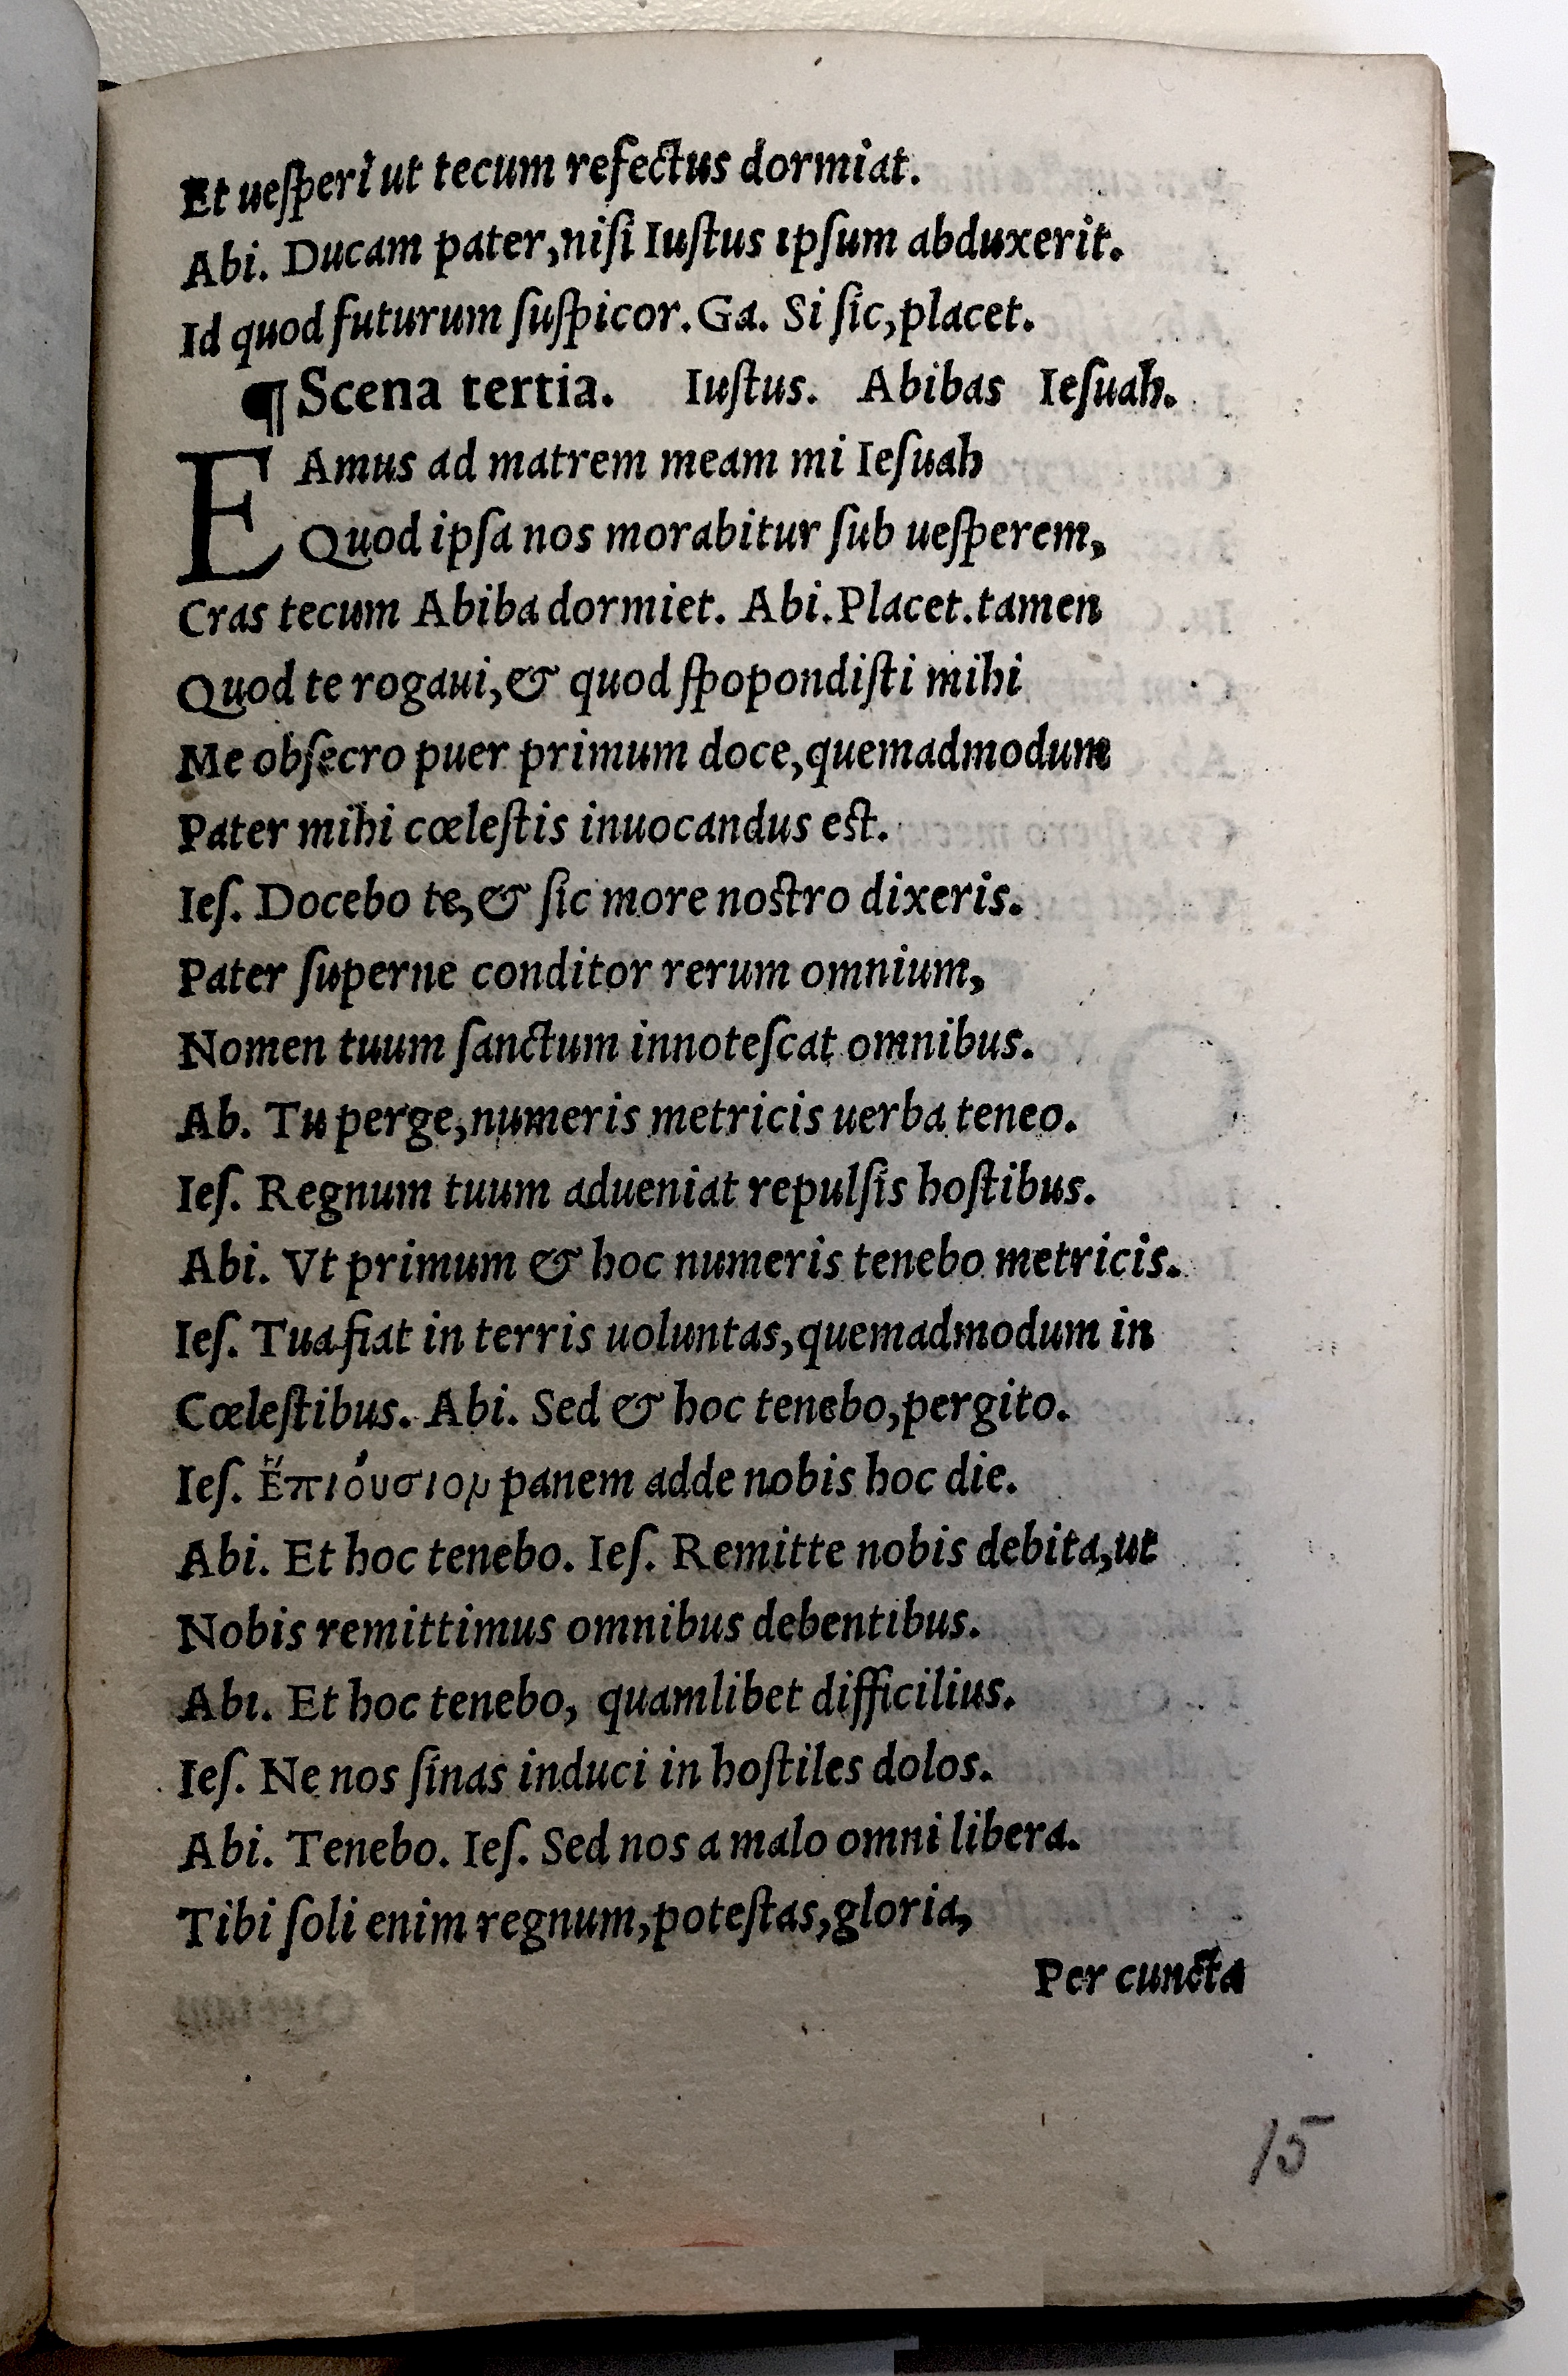 Et ueſperi ut tecum refectus dormiat.
Abi. Ducam pater,niſi Iuſtus ipſum abduxerit.
Id quod futurum ſuſpicor. Ga. Si ſic,placet.
¶ Scena tertia. Iuſtus. Abibas Ieſuah.
EAmus ad matrem meam mi Ieſuah
Quod ipſa nos morabitur ſub ueſperem,
Cras tecum Abiba dormiet. Abi. Placet.tamen
Quod te rogaui,& quod ſpopondiſti mihi
Me obſecro puer primum doce,quemadmodum
Pater mihi cœleſtis inuocandus est.
Ieſ. Docebo te,& ſic more nostro dixeris.
Pater ſuperne conditor rerum omnium,
Nomen tuum ſanctum innoteſcat omnibus.
Ab. Tu perge,numeris metricis uerba teneo.
Ieſ. Regnum tuum adueniat repulſis hoſtibus.
Abi. Vt primum & hoc numeris tenebo metricis.
Ieſ. Tua fiat in terris uoluntas,quemadmodum in
Cœleſtibus. Abi. Sed & hoc tenebo,pergito.
Ieſ. Ἔπιόυσιον panem adde nobis hoc die.
Abi. Et hoc tenebo. Ieſ. Remitte nobis debita,ut
Nobis remittimus omnibus debentibus.
Abi. Et hoc tenebo, quamlibet difficilius.
Ieſ. Ne nos ſinas induci in hoſtiles dolos.
Abi. Tenebo. Ieſ. Sed nos a malo omni libera.
Tibi ſoli enim regnum,poteſtas,gloria,
Per cuncta
15